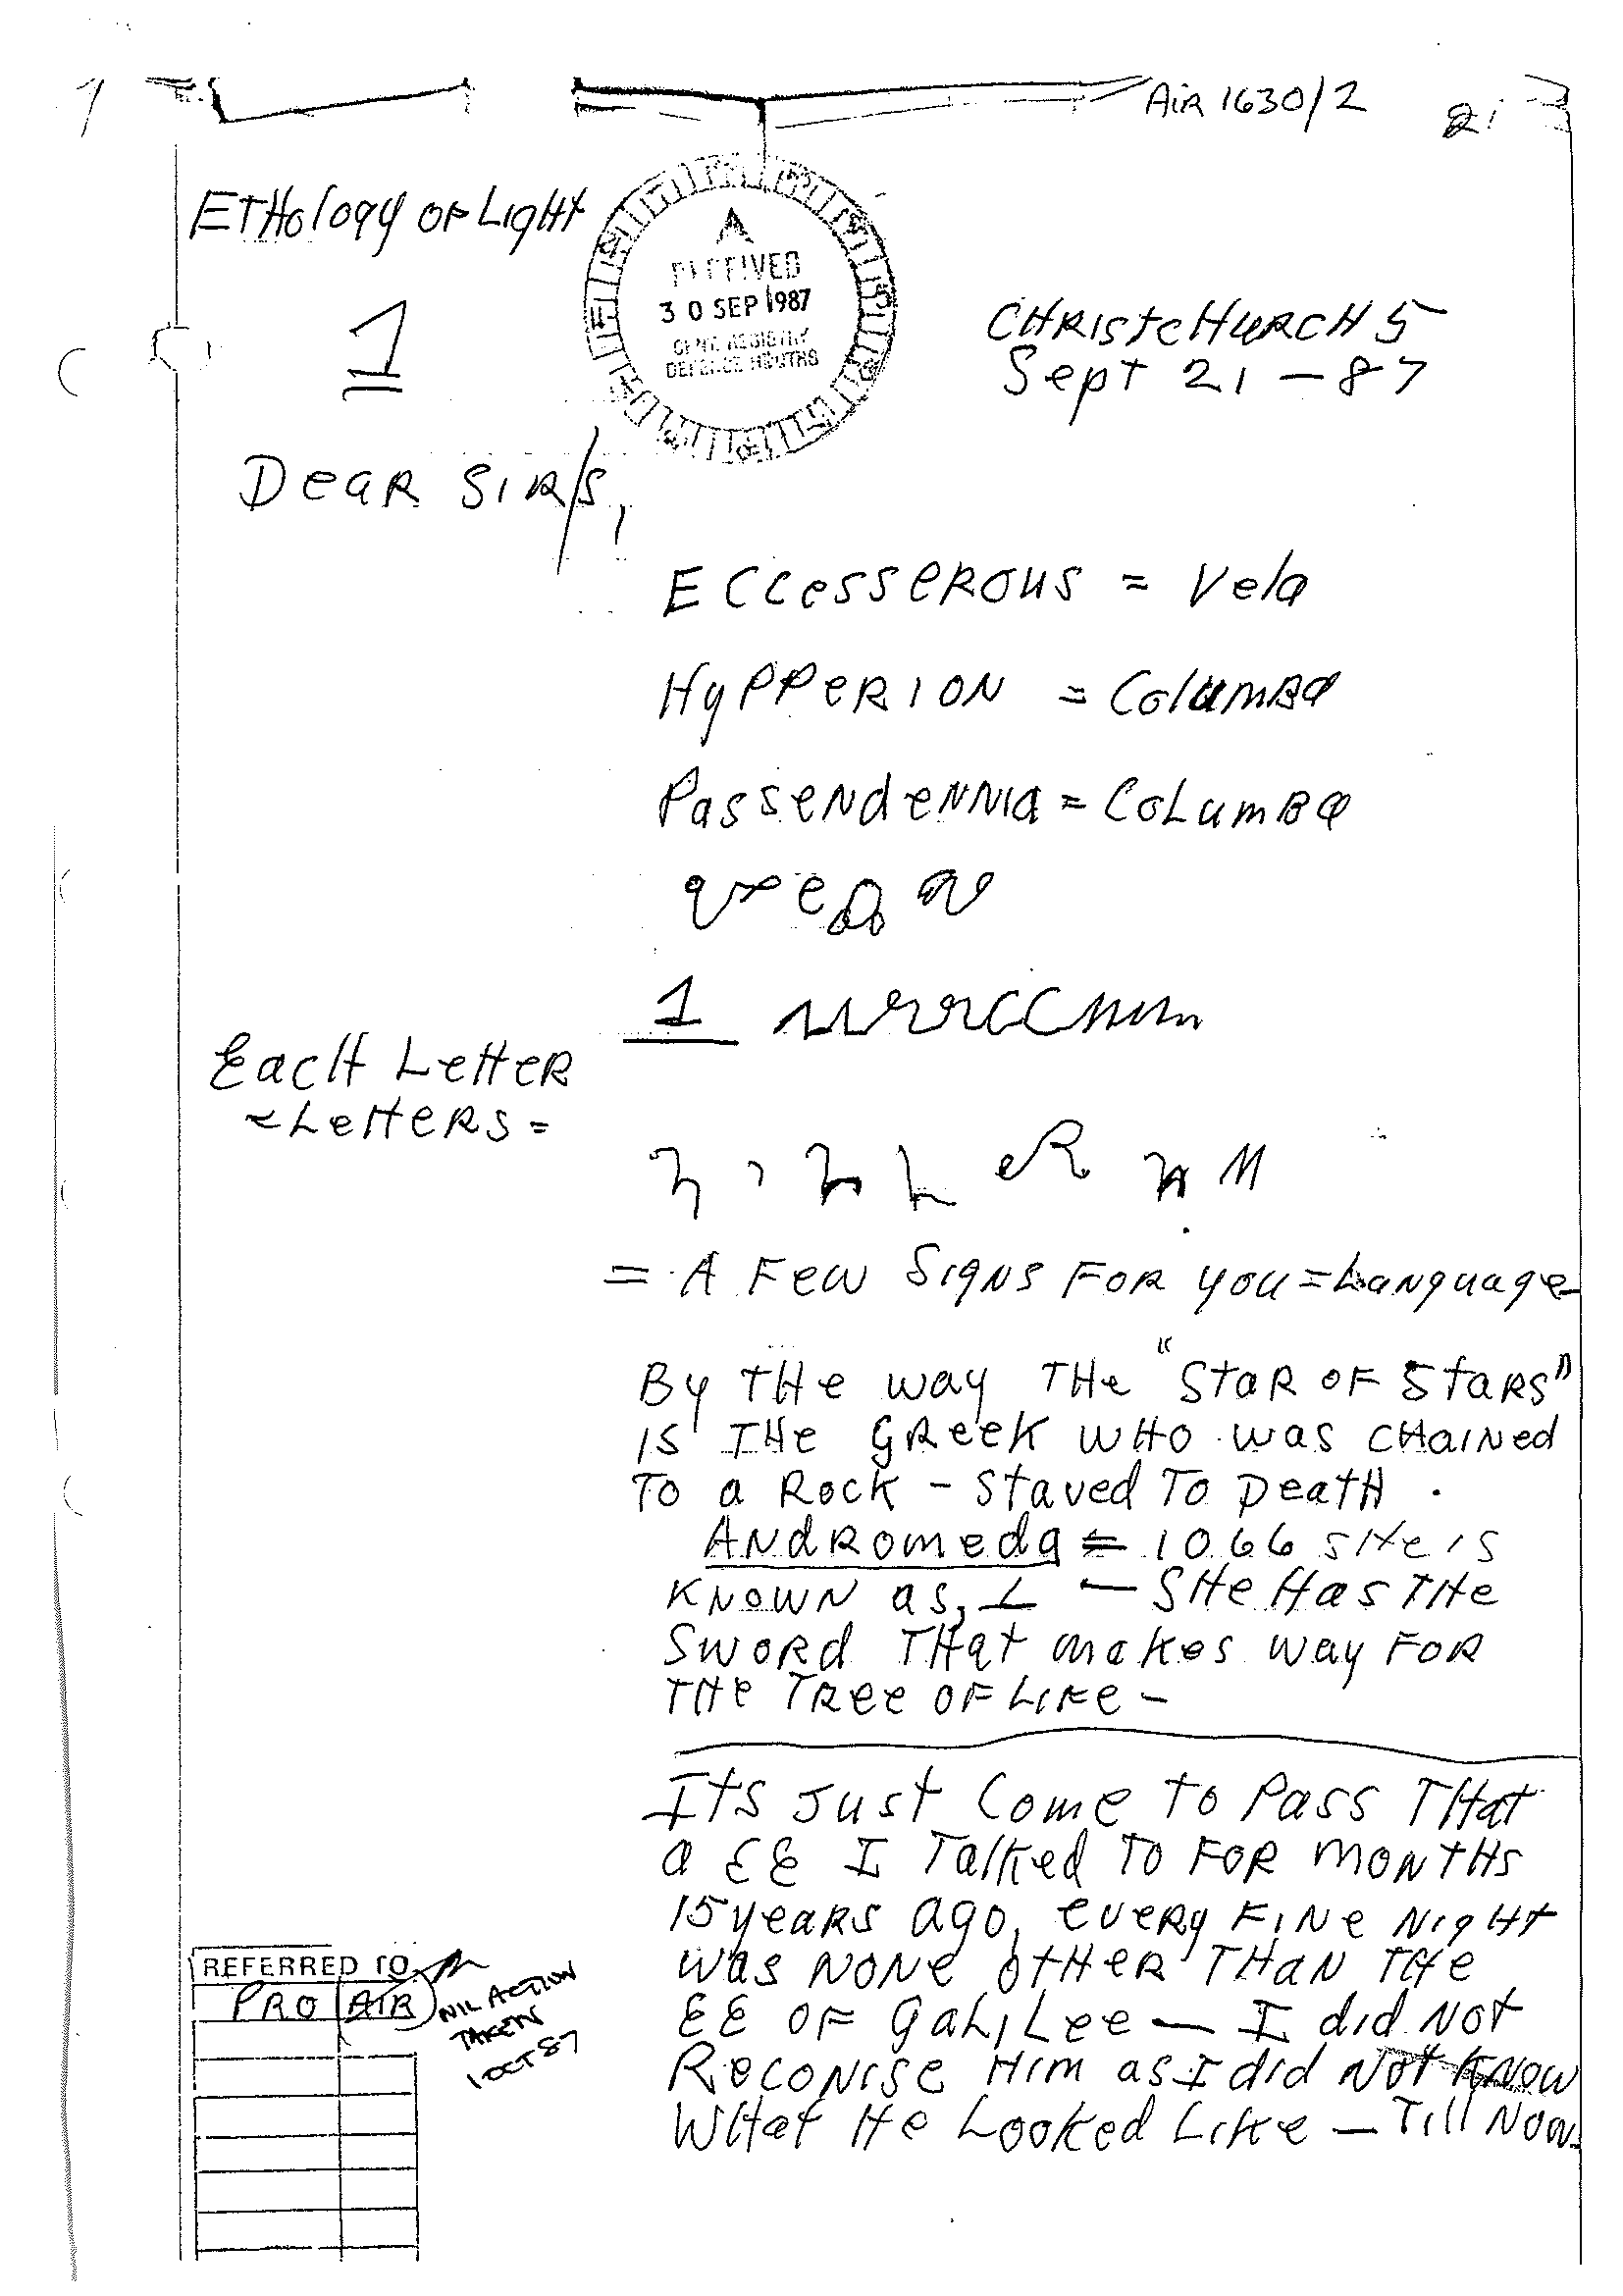 Air 1630/2
Ethology of Light
RECEIVED
30 SEP 1987
DEFENCE HQUTRS
1
CHRISTCHURCH 5
Sept 21 - 87
Dear Sir/s,
Eccesserous = Vela
Hypperion = Columba
Passendennia = Columba
1
Each Letter
= Letters =
= A Few Signs For you = Language
By THe way THe "Star of Stars"
is THe Greek WHo was CHained
To a Rock - Staved To Death.
Andromeda = 1066 sHe is
Known as, L - SHe Has THe
Sword THat makes way For
THe Tree of Life -
Its Just Come to Pass THat
a EE I Talked To For montHs
15 years ago, every Fine NigHt
was none otHer THan THe
EE of Galilee - I did Not
Reconise Him as I did Not Know
WHat He Looked Like - Till Now.
REFERRED TO
PRO AIR
NIL ACTION
TAKEN
1 OCT 87